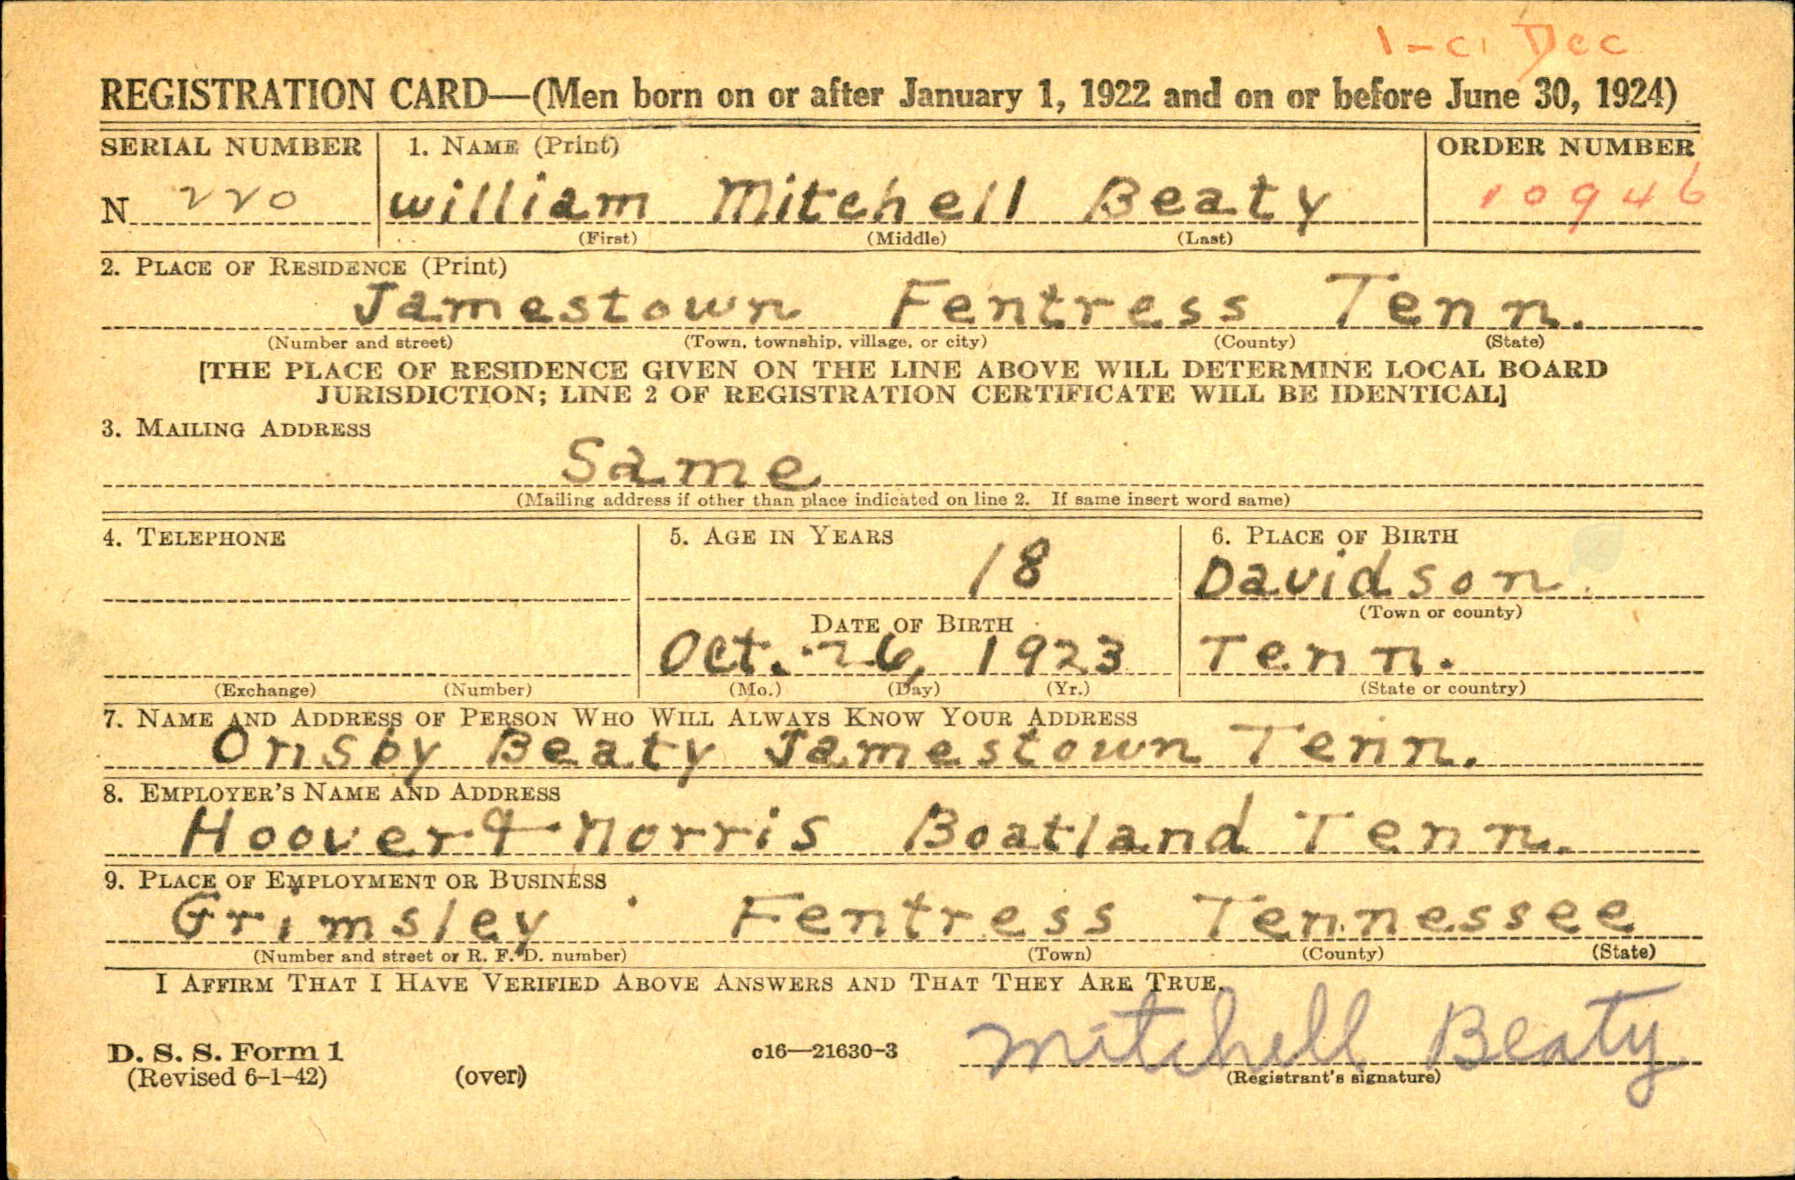 1-C Dec
REGISTRATION CARD—(Men born on or after January 1, 1922 and on or before June 30, 1924)
SERIAL NUMBER 1. NAME (Print) ORDER NUMBER
N 220 William Mitchell Beaty 10946
(First) (Middle) (Last)
2. PLACE OF RESIDENCE (Print)
Jamestown Fentress Tenn.
(Number and street) (Town, township, village, or city) (County) (State)
[THE PLACE OF RESIDENCE GIVEN ON THE LINE ABOVE WILL DETERMINE LOCAL BOARD
JURISDICTION; LINE 2 OF REGISTRATION CERTIFICATE WILL BE IDENTICAL]
3. MAILING ADDRESS
Same
(Mailing address if other than place indicated on line 2. If same insert word same)
4. TELEPHONE 5. AGE IN YEARS 6. PLACE OF BIRTH
18 Davidson
(Town or county)
DATE OF BIRTH
Oct. 26, 1923 Tenn.
(Exchange) (Number) (Mo.) (Day) (Yr.) (State or country)
7. NAME AND ADDRESS OF PERSON WHO WILL ALWAYS KNOW YOUR ADDRESS
Onsby Beaty Jamestown Tenn.
8. EMPLOYER'S NAME AND ADDRESS
Hoover & Norris Boatland Tenn.
9. PLACE OF EMPLOYMENT OR BUSINESS
Grimsley Fentress Tennessee
(Number and street or R. F. D. number) (Town) (County) (State)
I AFFIRM THAT I HAVE VERIFIED ABOVE ANSWERS AND THAT THEY ARE TRUE.
D. S. S. Form 1 c16—21630-3 Mitchell Beaty
(Revised 6-1-42) (over) (Registrant's signature)